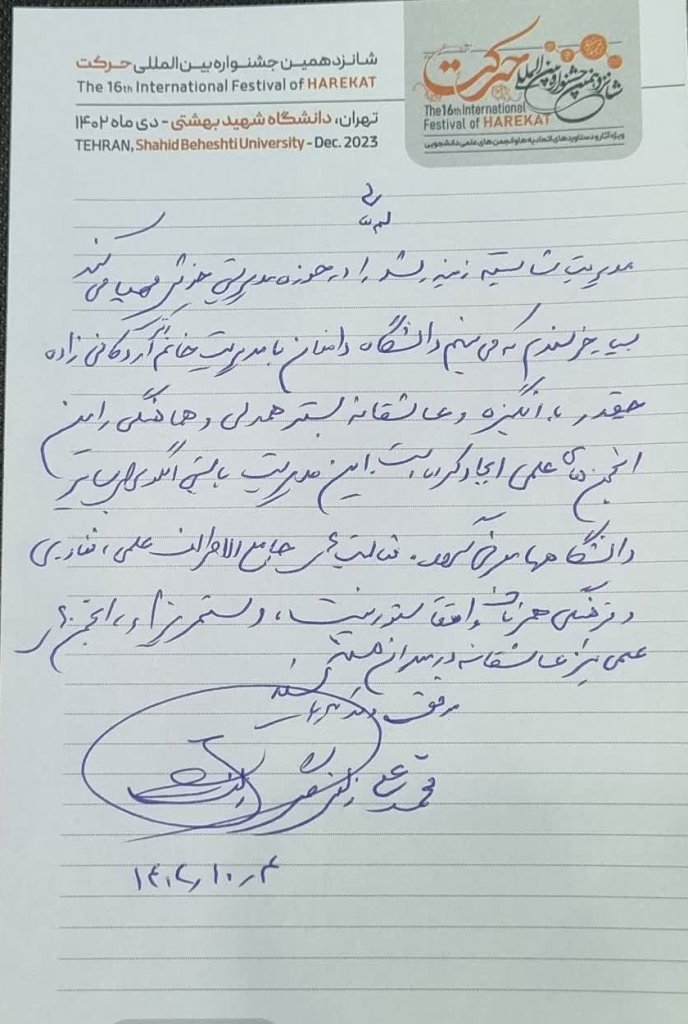 شانزدهمین جشنواره بین‌المللی حرکت
The 16th International Festival of HAREKAT
تهران، دانشگاه شهید بهشتی - دی ماه ۱۴۰۲
TEHRAN, Shahid Beheshti University - Dec. 2023
شانزدهمین جشنواره بین‌المللی حرکت
The 16th International
Festival of HAREKAT
ویژه آثار و دستاوردهای اتحادیه‌ها و انجمن‌های علمی دانشجویی
مدیریت شایسته زمینه رشد را در حوزه مدیریتی خویش مهیا می کند
بسیار خرسندم که می بینم دانشگاه دامغان با مدیریت خانم اردکانی زاده
چقدر با انگیزه و عاشقانه بستر همدلی و هماهنگی را بین
انجمن های علمی ایجاد کرده است. این مدیریت بایستی الگوی سایر
دانشگاهها. فعالیت های جامع الاطراف علمی،
و فرهنگی واقعا، و انجمن های
علمی نیز عاشقانه در میدان هستند
موفق
محمد علی
۱۴۰۲/۱۰/۴